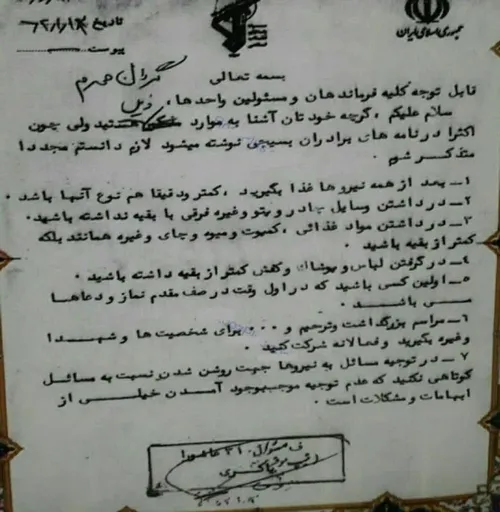 جمهوری اسلامی ایران
تاریخ
پیوست
بسمه تعالی
قابل توجه کلیه فرماندهان و مسئولین واحدها،
سلام علیکم، گرچه خودتان آشنا به موارد ذیل هستید ولی چون
اکثرا در نامه های برادران بسیجی نوشته میشود لازم دانستم مجددا
متذکر شوم.
۱- بعد از همه نیروها غذا بگیرید، کمتر و دقیقا هم نوع آنها باشد.
۲- در داشتن وسایل چادر و پتو و غیره فرقی با بقیه نداشته باشید.
۳- در داشتن مواد غذائی، کمپوت و میوه و چای و غیره همانند بلکه
کمتر از بقیه باشید.
۴- در گرفتن لباس و پوشاک و کفش کمتر از بقیه داشته باشید.
۵- اولین کسی باشید که در اول وقت در صف مقدم نماز و دعاها
می باشد.
۶- مراسم بزرگداشت و ترحیم و ... برای شخصیت ها و شهدا
و غیره بگیرید و فعالانه شرکت کنید.
۷- در توجیه مسائل به نیروها جهت روشن شدن نسبت به مسائل
کوتاهی نکنید که عدم توجیه موجب بوجود آمدن خیلی از
ابهامات و مشکلات است.
ف مسئول ۳۱ عاشورا